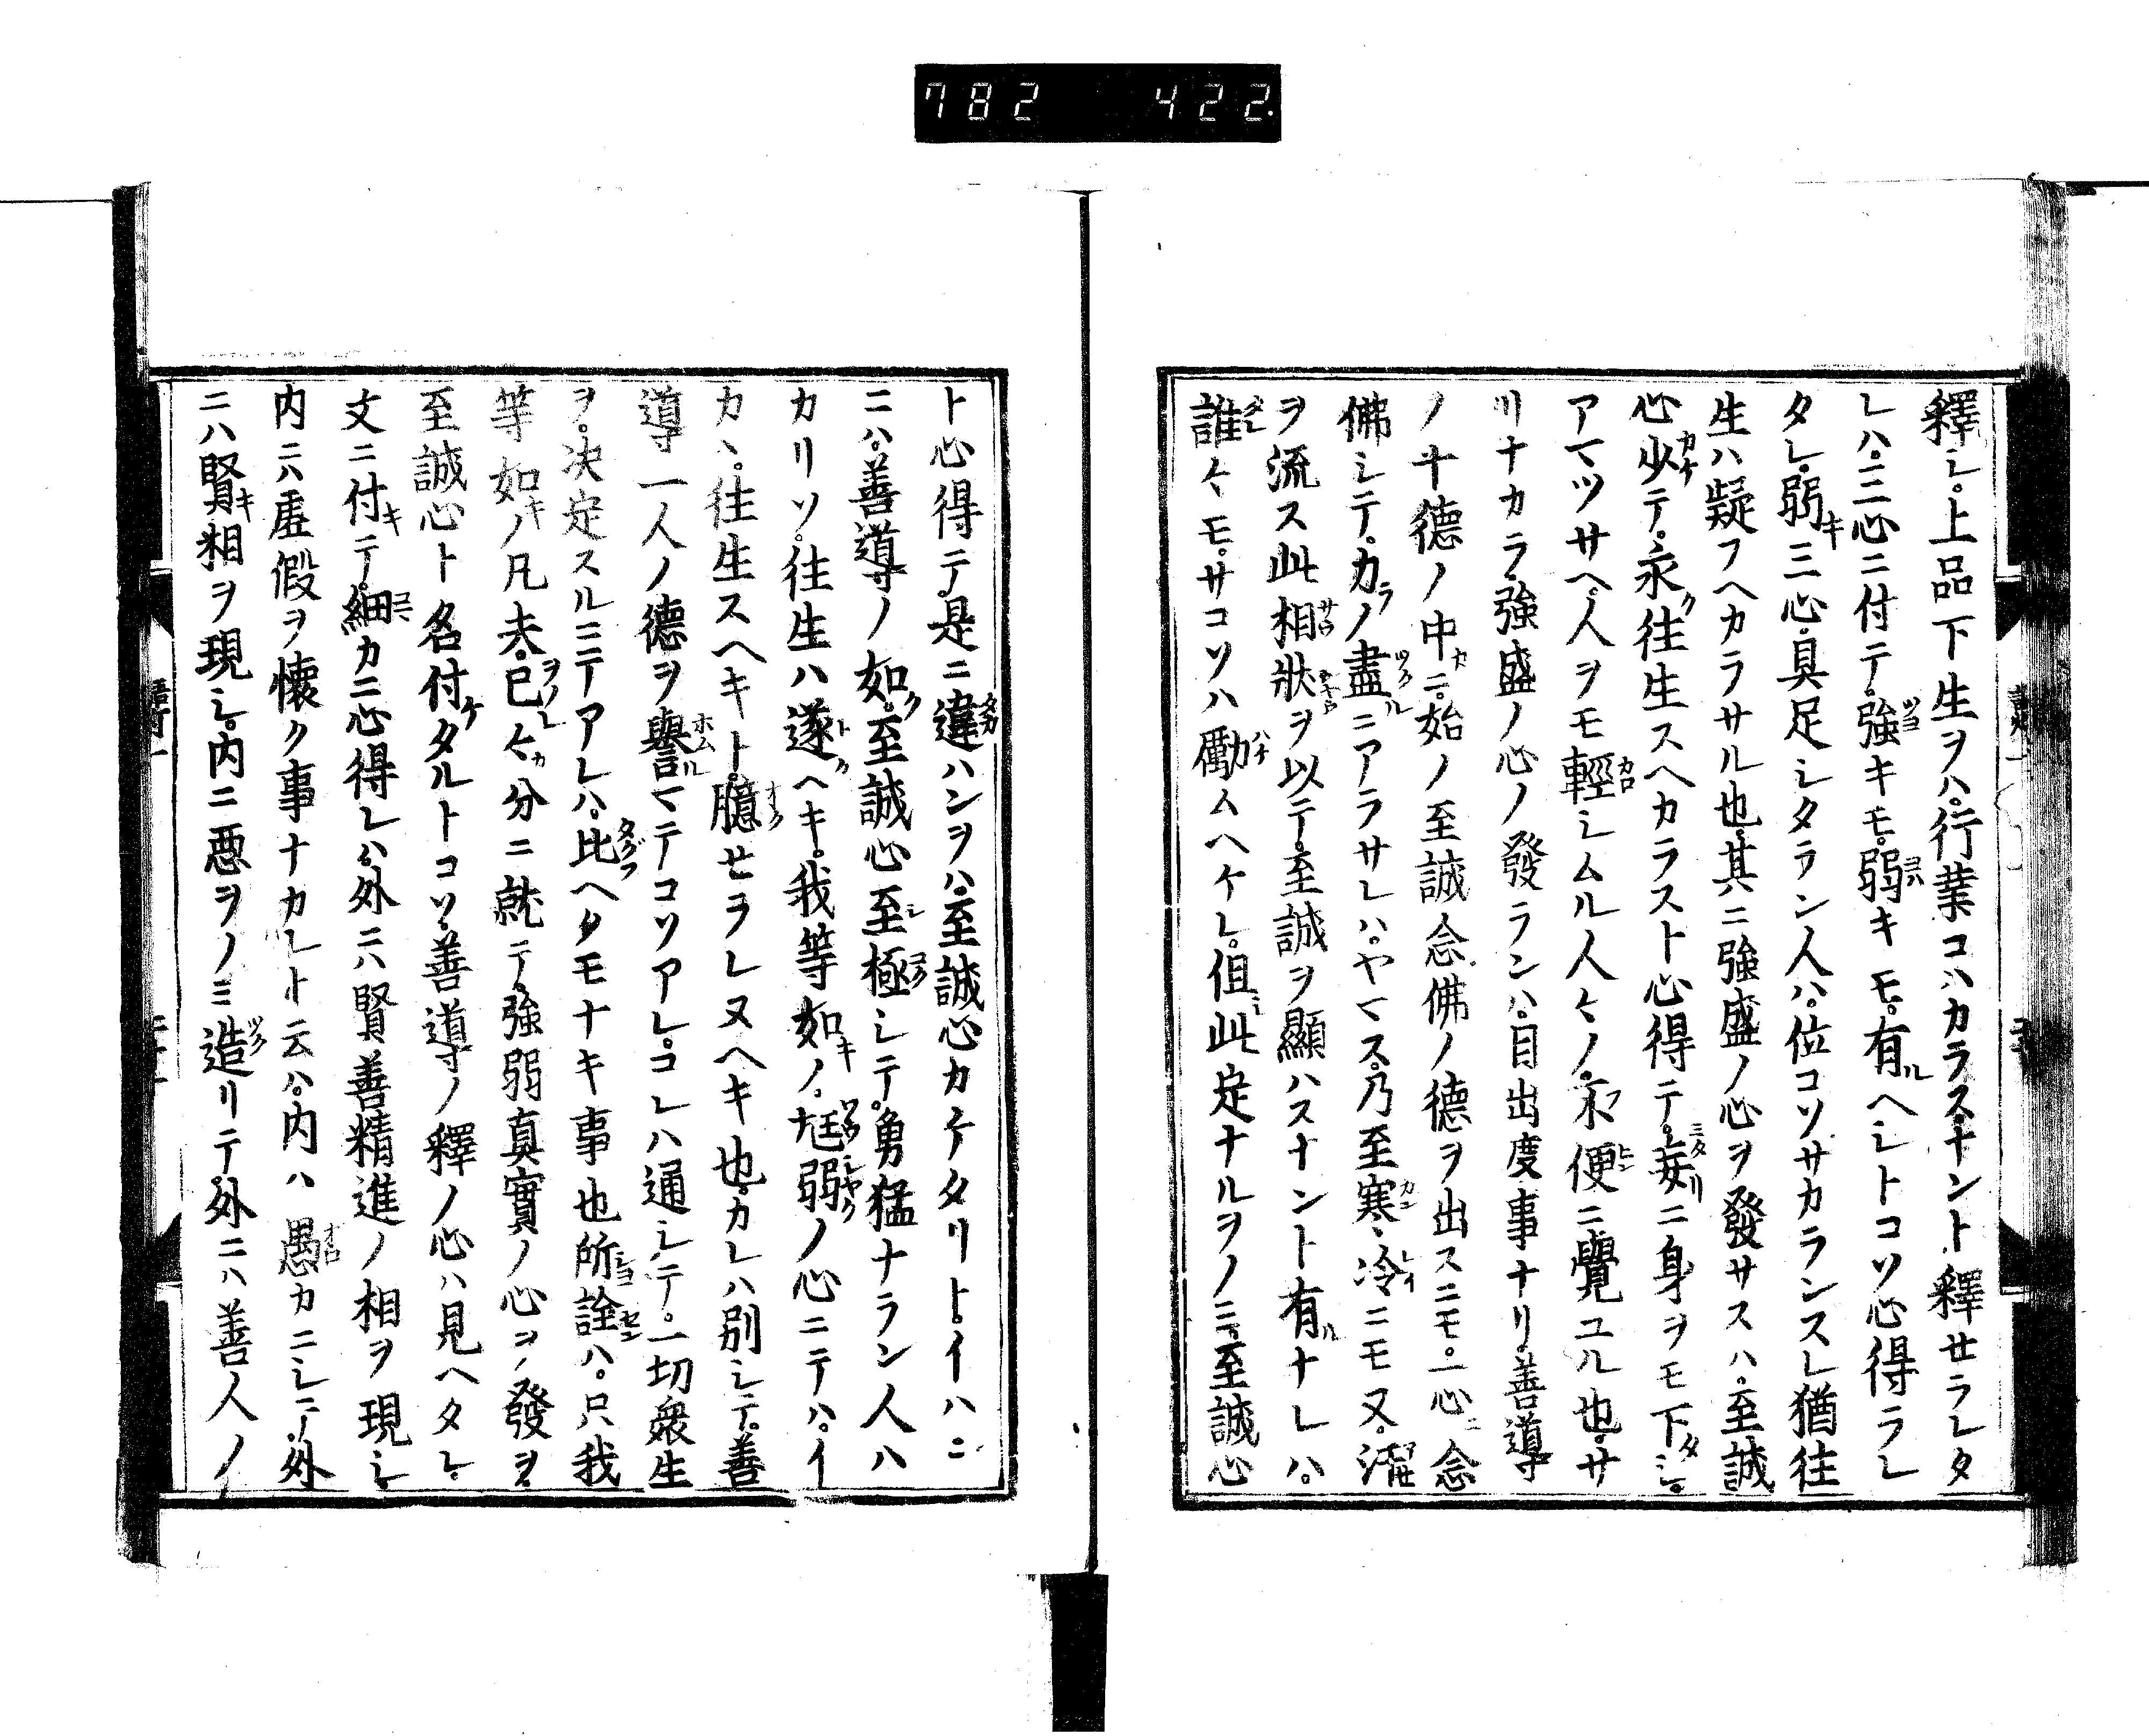 782 422.
釋シ。上品下生ヲハ。行業コハカラスナント釋セラレタ
レハ。三心ニ付テ。強キモ。弱キモ。有ヘシトコソ心得ラレ
タレ。弱キ三心。具足シタラン人ハ。位コソサカランスレ猶往
生ハ疑フヘカラサル也。其ニ強盛ノ心ヲ發サスハ。至誠
心少テ。永往生スヘカラスト心得テ。妄ニ身ヲモ下シ。
アマツサヘ。人ヲモ輕シムル人々ノ。不便ニ覺ユル也。サ
リナカラ。強盛ノ心ノ發ランハ。目出度事ナリ。善導
ノ十德ノ中ニ。始ノ至誠念佛ノ德ヲ出スニモ。一心ニ念
佛シテ。力ノ盡ニアラサレハ。ヤマス。乃至寒冷ニモ又。
ヲ流ス此相狀ヲ以テ。至誠ヲ顯ハスナント有ナレハ。
誰々モ。サコソハ勵ムヘケレ。但此定ナルヲノミ。至誠心
ト心得テ。是ニ違ハンヲハ。至誠心カケタリト。イハン
ニハ。善導ノ如。至誠心至極シテ。勇猛ナラン人ハ
カリソ。往生ハ遂ヘキ。我等如ノ。尫弱ノ心ニテハ。イ
カヽ。往生スヘキト。臆セラレヌヘキ也。カレハ別シテ。善
導一人ノ德ヲ譽マテコソアレ。コレハ通シテ。一切衆生
ヲ。決定スルニテアレハ。比ヘタモナキ事也所詮ハ。只我
等如ノ凡夫。已々分ニ就テ。強弱真實ノ心ヲ發ヲ。
至誠心ト名付タルトコソ。善導ノ釋ノ心ハ見ヘタレ。
文ニ付テ。細カニ心得レハ。外ニハ賢善精進ノ相ヲ現シ
内ニハ虛假ヲ懷ク事ナカレト云ハ。内ハ愚カニシテ。外
ニハ賢相ヲ現シ。内ニ悪ヲノミ造リテ外ニハ善人ノ